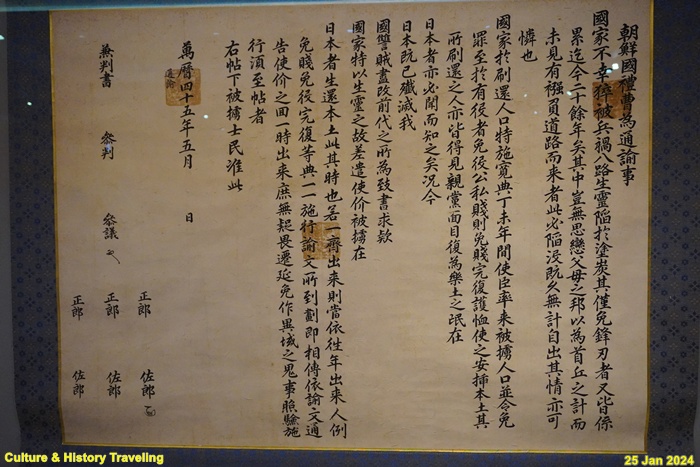 朝鮮國禮曹為通諭事
國家不幸猝被兵禍八路生靈陷於塗炭其僅免鋒刃者又皆係
累迄今二十餘年矣其中豈無思戀父母之邦以為首丘之計而
未見有襁負道路而来者此必陷没既久無計自出其情亦可
憐也
國家於刷還人口特施寛典丁未年間使臣率来被擄人口並令免
罪至於有役者免役公私賤則免賤完復護恤使之安挿本土其
所刷還之人亦皆得見親黨面目復為樂土之氓在
日本者亦必聞而知之矣況今
日本既已殲滅我
國讐賊盡改前代之所為致書求欵
國家特以生靈之故差遣使价被擄在
日本者生還本土此其時也若一齊出来則當依徃年出来人例
免賤免役完復等典一一施行諭文所到劃即相傳依諭文通
告使价之回一時出来庶無疑畏遷延免作異域之鬼事照驗施
行須至帖者
右帖下被擄士民准此
萬曆四十五年五月 日
通諭
兼判書 叅判 叅議
正郎 正郎 正郎
佐郎 佐郎 佐郎
Culture & History Traveling
25 Jan 2024